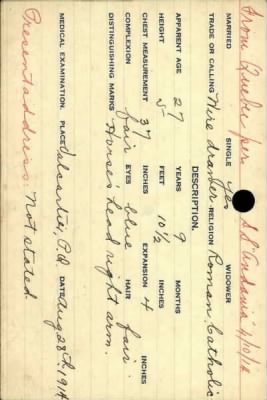 From Quebec per S.S. "Andania" 3/10/14
MARRIED SINGLE Yes WIDOWER
TRADE OR CALLING Wire drawer RELIGION Roman Catholic
DESCRIPTION.
APPARENT AGE 27 YEARS 9 MONTHS
HEIGHT 5 FEET 10 1/2 INCHES
CHEST MEASUREMENT 37 INCHES EXPANSION 4 INCHES
COMPLEXION fair EYES blue HAIR fair
DISTINGUISHING MARKS Horse's head right arm.
MEDICAL EXAMINATION. PLACE Valcartier, P.Q. DATE Aug. 28th, 1914
Present address: Not stated.